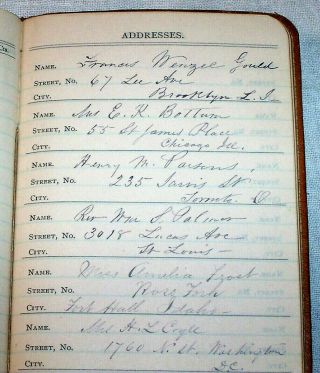 ADDRESSES.
NAME. Frances Wenzel Gould
STREET, NO. 67 Lee Ave
CITY. Brooklyn L. I.
NAME. Mrs E. K. Bottum
STREET, NO. 55 St James Place
CITY. Chicago Ill.
NAME. Henry M. Parsons
STREET, NO. 235 Jarvis St
CITY. Toronto O.
NAME. Rev Wm S. Palmer
STREET, NO. 3018 Lucas Ave
CITY. St Louis
NAME. Miss Amelia Frost
STREET, NO. Ross Fork
CITY. Fort Hall Idaho
NAME. H L
STREET, NO. 1760 N. St. Washington
CITY. D.C.